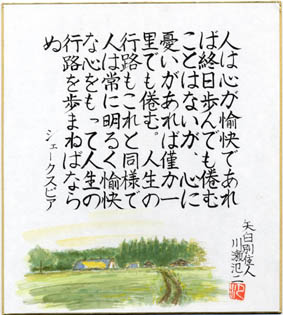 人は心が愉快であれ
ば終日歩んでも倦む
ことはないが、心に
憂いがあれば僅か一
里でも倦む。人生の
行路もこれと同様で
人は常に明るく愉快
な心をもって人生の
行路を歩まねばなら
ぬ
シェークスピア
矢臼別住人
川瀬氾二